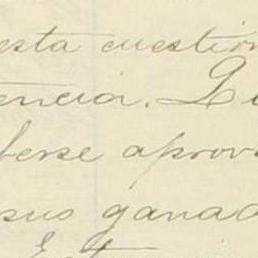 esta cuestion
encia. Lu
berse aprov
sus ganad